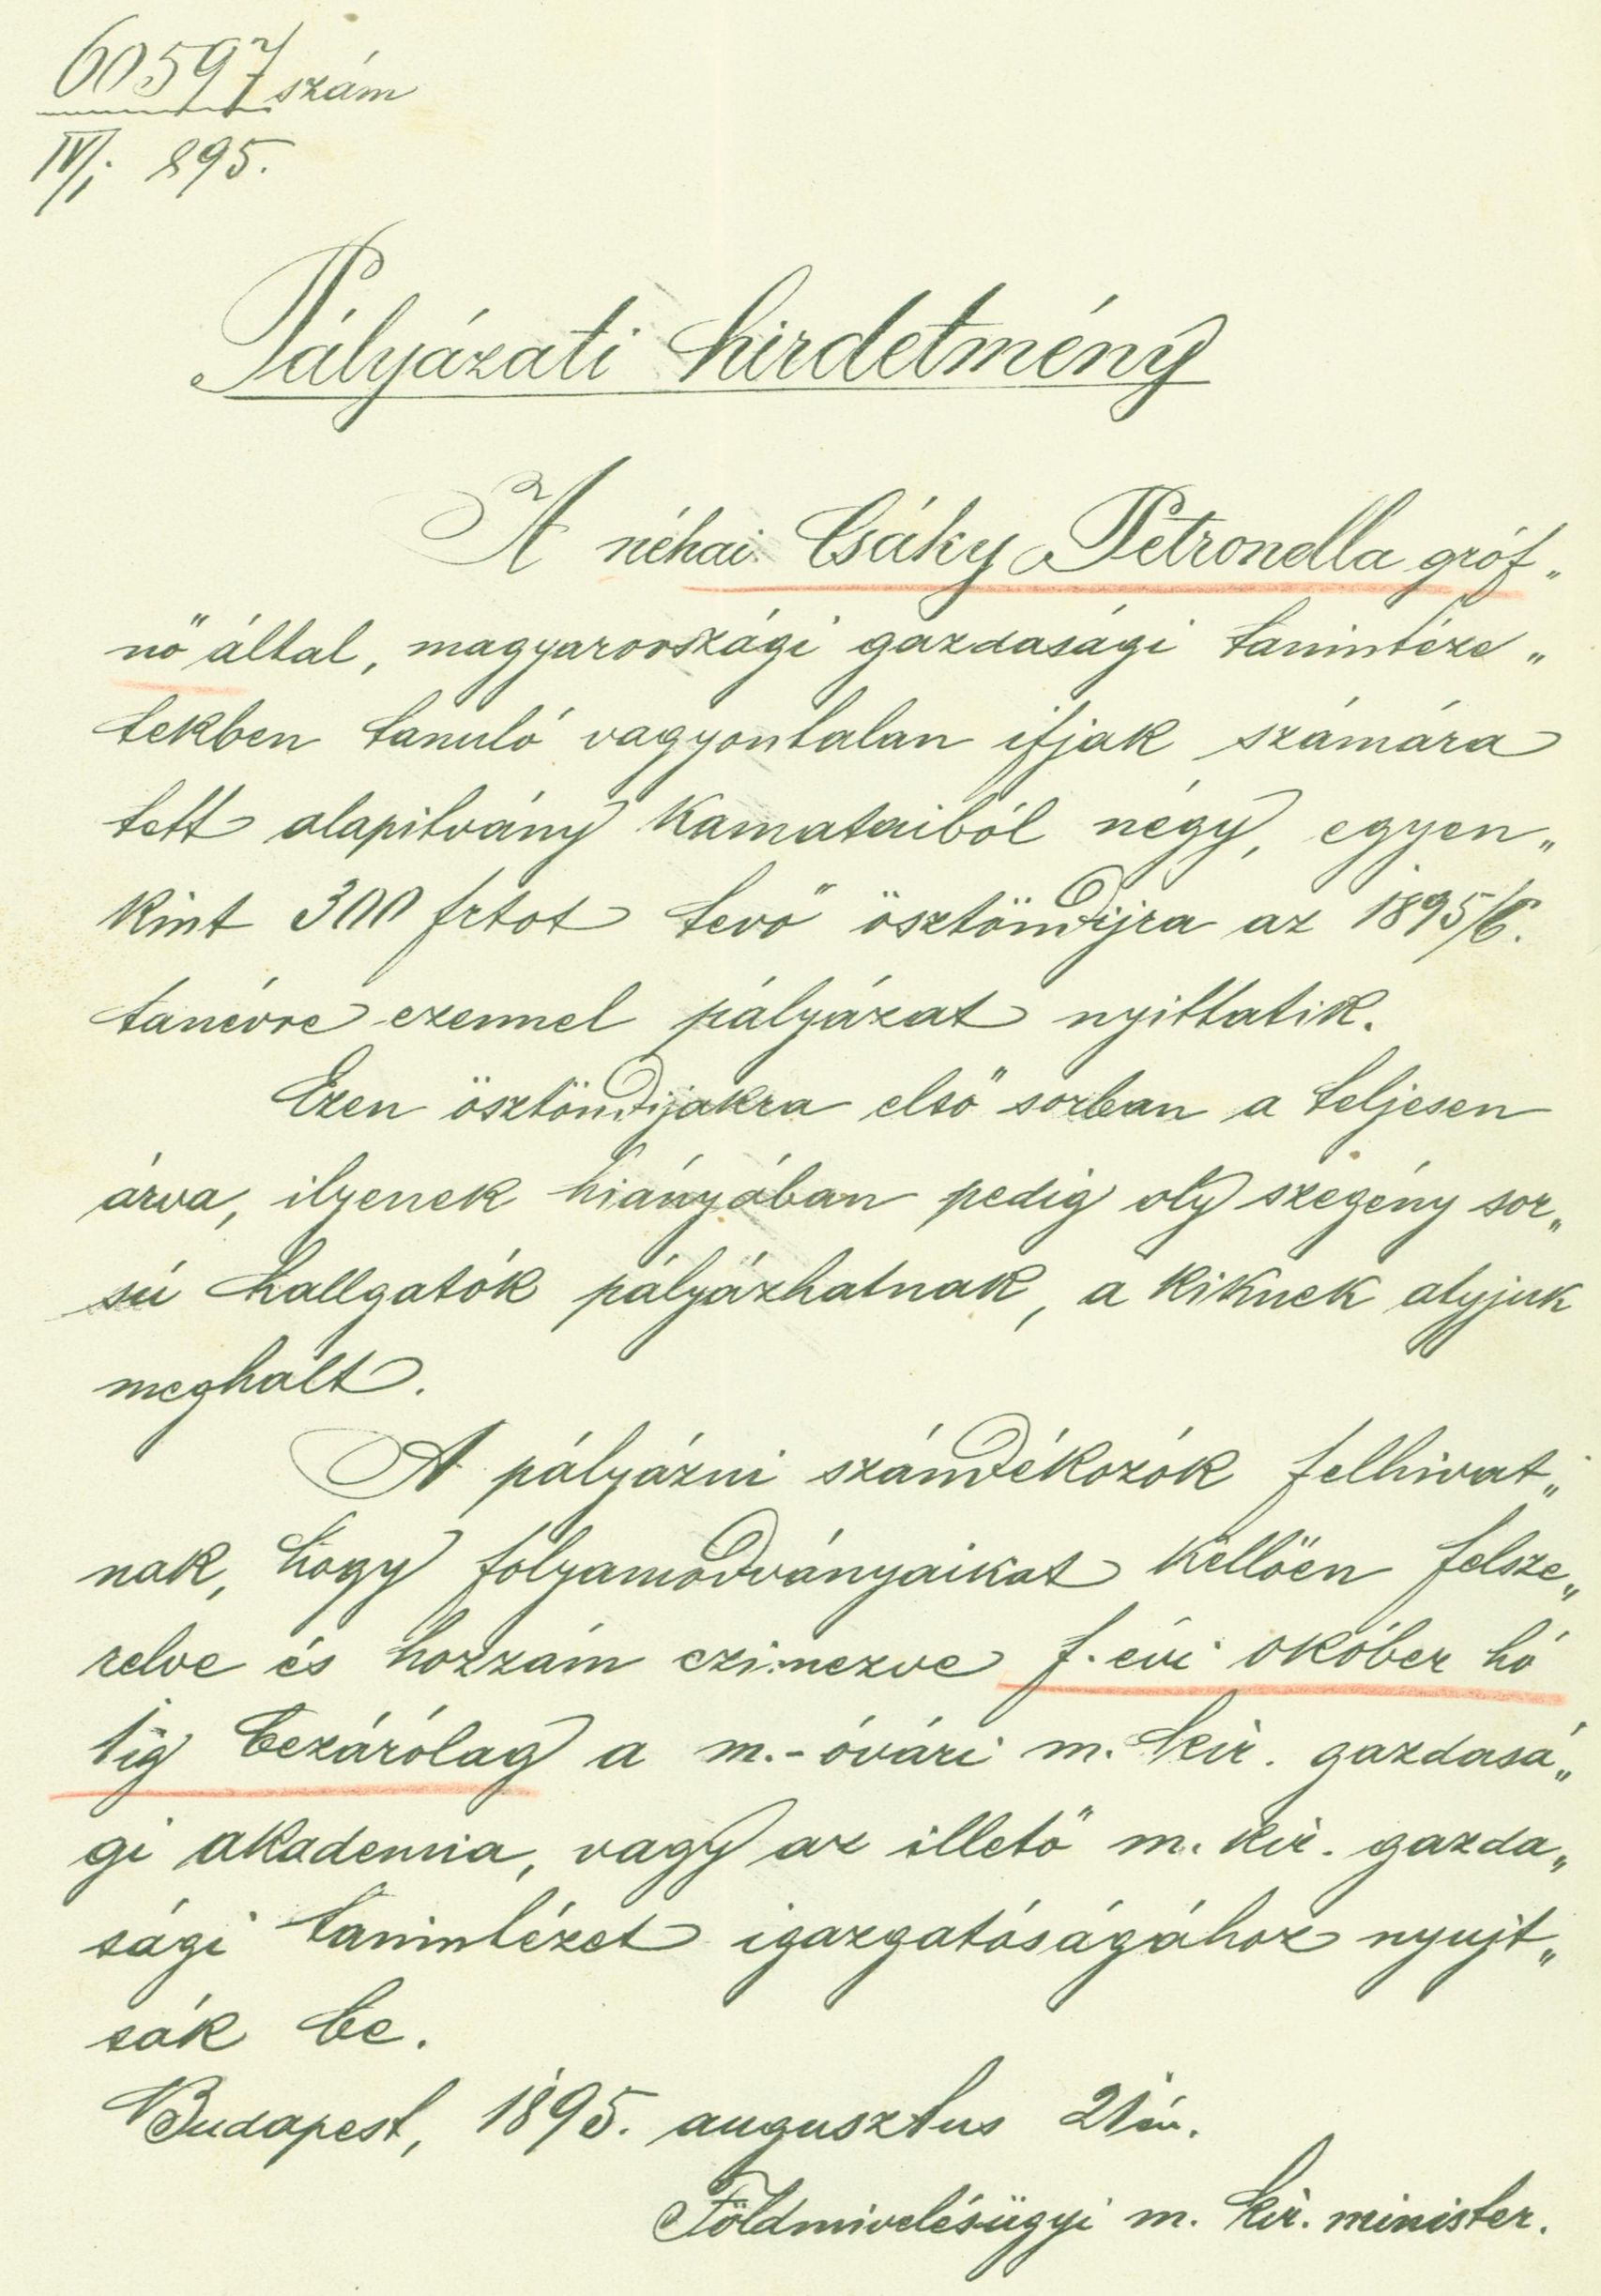 60597 szám
IV/1. 895.
Pályázati hirdetmény
A néhai Csáky Petronella gróf„
nő által, magyarországi gazdasági tanintéze„
tekben tanuló vagyontalan ifjak számára
tett alapitvány kamataiból négy, egyen„
kint 300 frtot tevő ösztöndijra az 1895/6.
tanévre ezennel pályázat nyittatik.
Ezen ösztöndijakra első sorban a teljesen
árva, ilyenek hiányában pedig oly szegény sor„
sú hallgatók pályázhatnak, a kiknek atyjuk
meghalt.
A pályázni szándékozók felhivat„
nak, hogy folyamodványaikat kellöen felsze„
relve és hozzám czimezve f. évi október hó
1ig bezárólag a m.-óvári m. kir. gazdasá„
gi akademia, vagy az illető m. kir. gazda„
sági tanintézet igazgatóságához nyujt„
sák be.
Budapest, 1895. augusztus 21én.
Földmivelésügyi m. kir. minister.